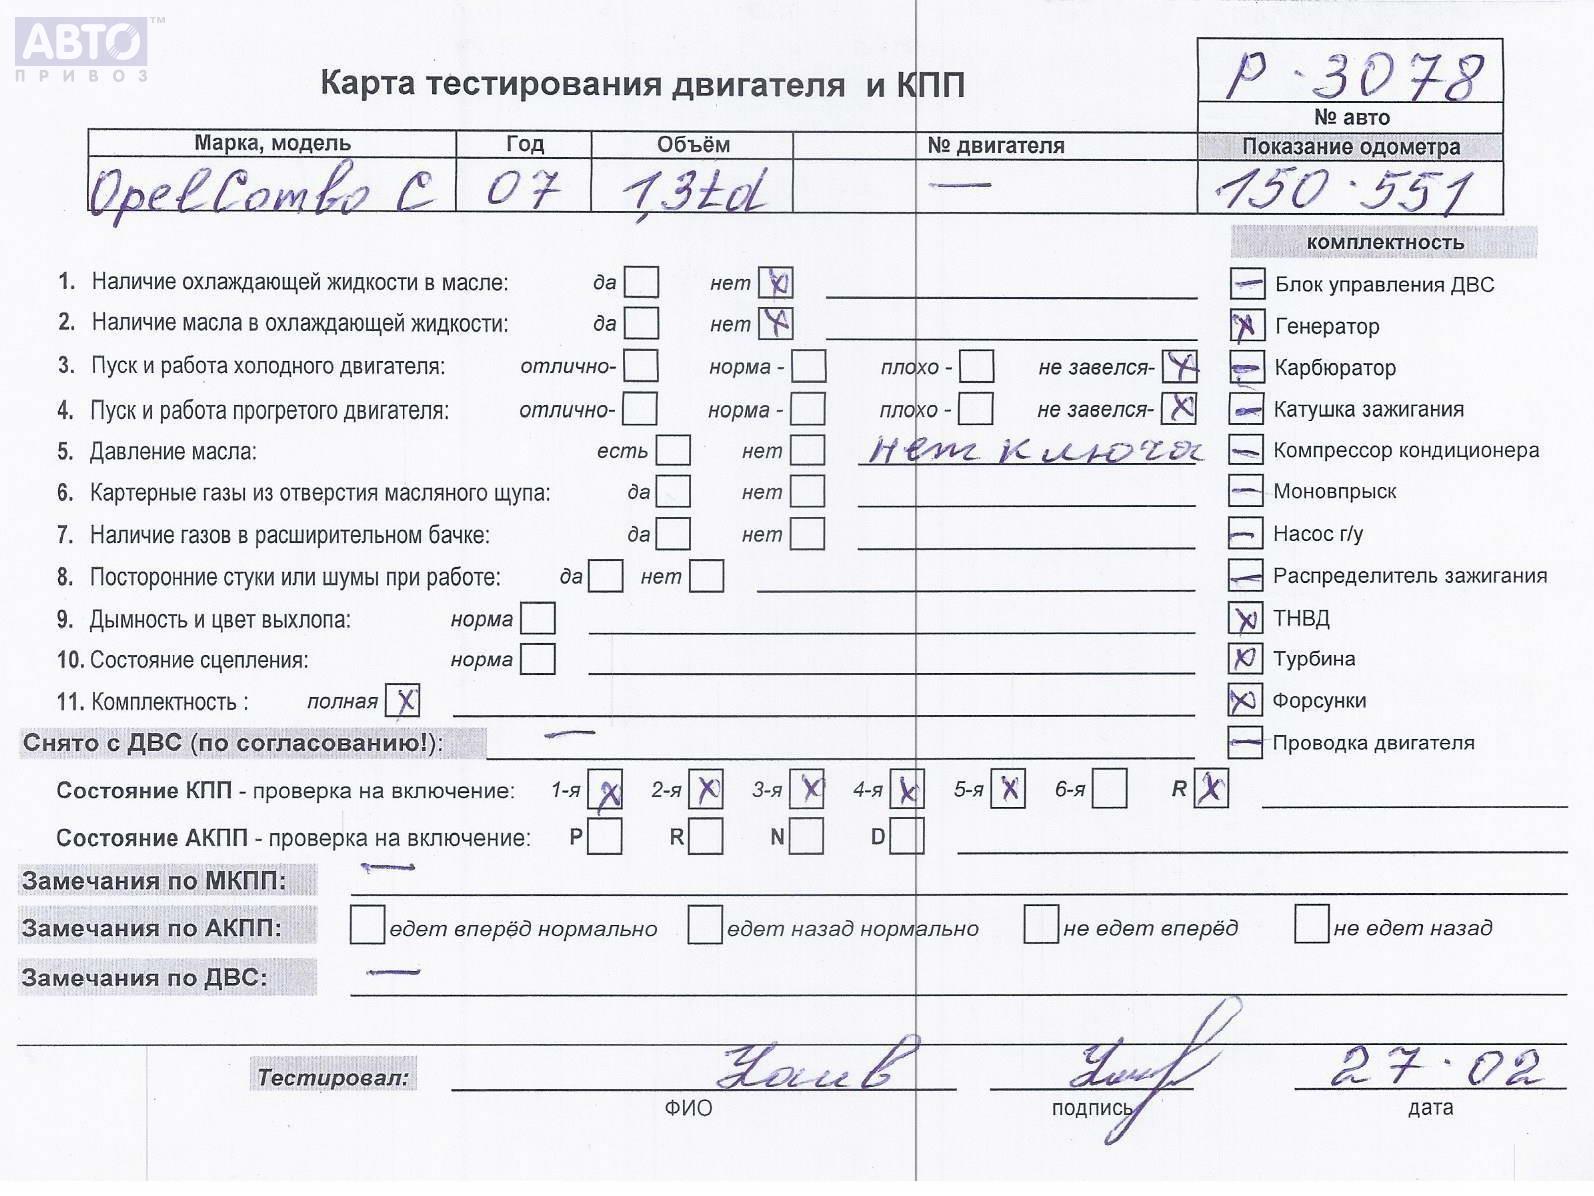 АВТО ™
ПРИВОЗ
Карта тестирования двигателя и КПП
Р-3078
№ авто
Марка, модель Год Объём № двигателя Показание одометра
Opel Combo C 07 1,3td — 150.551
комплектность
1. Наличие охлаждающей жидкости в масле: да нет X
— Блок управления ДВС
2. Наличие масла в охлаждающей жидкости: да нет X
X Генератор
3. Пуск и работа холодного двигателя: отлично- норма - плохо - не завелся- X
— Карбюратор
4. Пуск и работа прогретого двигателя: отлично- норма - плохо - не завелся- X
— Катушка зажигания
5. Давление масла: есть нет нет ключа
— Компрессор кондиционера
6. Картерные газы из отверстия масляного щупа: да нет
— Моновпрыск
7. Наличие газов в расширительном бачке: да нет
— Насос г/у
8. Посторонние стуки или шумы при работе: да нет
— Распределитель зажигания
9. Дымность и цвет выхлопа: норма
X ТНВД
10. Состояние сцепления: норма
X Турбина
11. Комплектность : полная X
X Форсунки
Снято с ДВС (по согласованию!): —
— Проводка двигателя
Состояние КПП - проверка на включение: 1-я X 2-я X 3-я X 4-я X 5-я X 6-я R X
Состояние АКПП - проверка на включение: P R N D
Замечания по МКПП: —
Замечания по АКПП: едет вперёд нормально едет назад нормально не едет вперёд не едет назад
Замечания по ДВС: —
Тестировал: 27.02
ФИО подпись дата